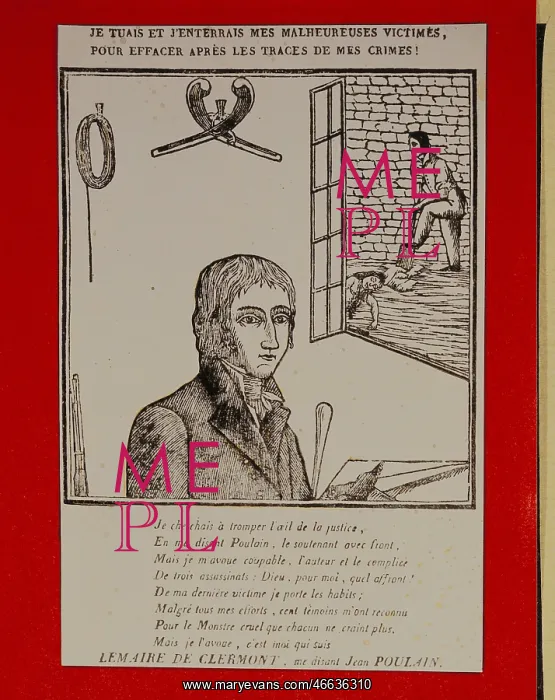 JE TUAIS ET J'ENTERRAIS MES MALHEUREUSES VICTIMES,
POUR EFFACER APRÈS LES TRACES DE MES CRIMES!
ME
PL
ME
PL
Je cherchais à tromper l'œil de la justice,
En me disant Poulain, le soutenant avec front,
Mais je m'avoue coupable, l'auteur et le complice
De trois assassinats : Dieu, pour moi, quel affront!
De ma dernière victime je porte les habits;
Malgré tous mes efforts, cent témoins m'ont reconnu
Pour le Monstre cruel que chacun ne craint plus.
Mais je l'avoue, c'est moi qui suis
LEMAIRE DE CLERMONT, me disant Jean POULAIN.
www.maryevans.com/46636310